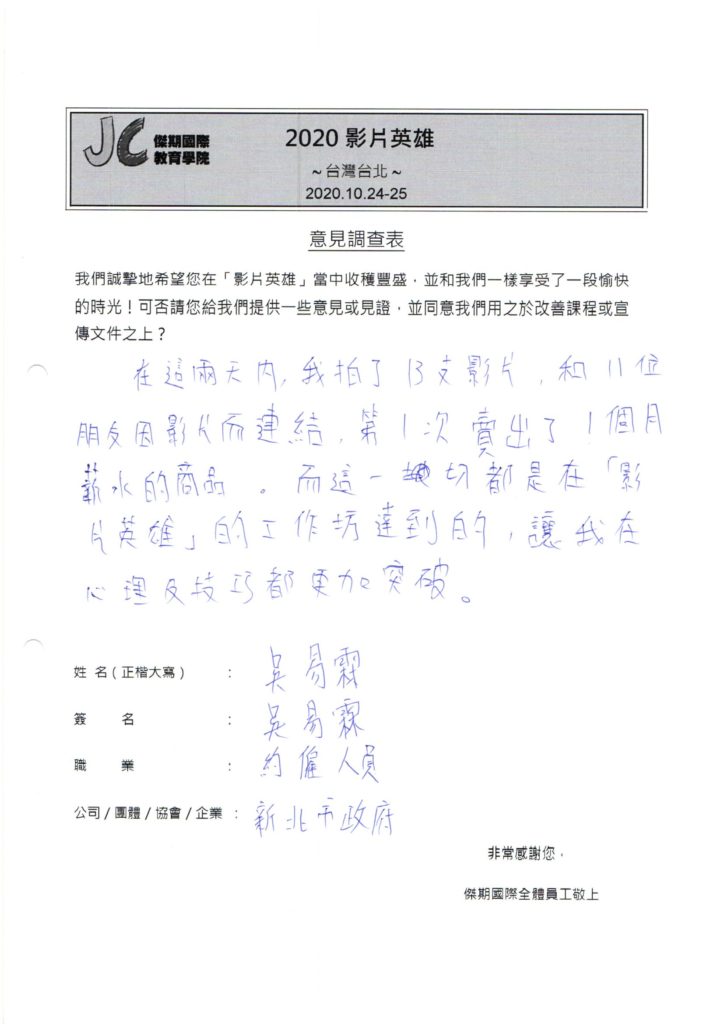 JC 傑期國際
教育學院
2020 影片英雄
~台灣台北~
2020.10.24-25
意見調查表
我們誠摯地希望您在「影片英雄」當中收穫豐盛，並和我們一樣享受了一段愉快
的時光！可否請您給我們提供一些意見或見證，並同意我們用之於改善課程或宣
傳文件之上？
在這兩天內，我拍了13支影片，和11位
朋友因影片而連結，第1次賣出了1個月
薪水的商品。而這一切都是在「影
片英雄」的工作坊達到的，讓我在
心理及技巧都更加突破。
姓 名 ( 正楷大寫 ) ： 吳易霖
簽 名 ： 吳易霖
職 業 ： 約僱人員
公司 / 團體 / 協會 / 企業 ： 新北市政府
非常感謝您，
傑期國際全體員工敬上